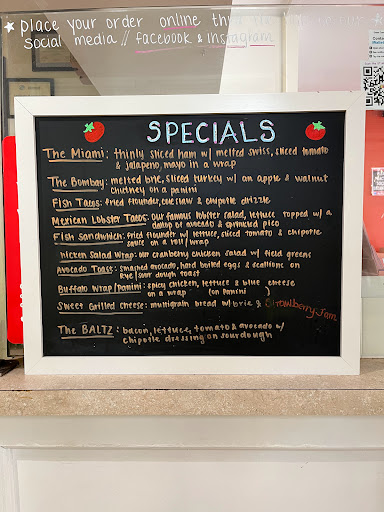 ★ place your order online
social media // facebook & Instagram
SPECIALS
The Miami: thinly sliced ham w/ melted swiss, sliced tomato
& jalapeno, mayo in a wrap
The Bombay: melted brie, sliced turkey w/ an apple & walnut
chutney on a panini
Fish Tacos: fried flounder, cole slaw & chipotle drizzle
Mexican Lobster Tacos: our famous lobster salad, lettuce topped w/ a
dollop of avocado & sprinkled pico
Fish Sandwhich: fried flounder w/ lettuce, sliced tomato & chipotle
sauce on a roll/wrap
chicken Salad Wrap: our cranberry chicken salad w/ field greens
Avocado Toast: smashed avocado, hard boiled eggs & scallions on
Rye/sour dough toast
Buffalo Wrap/Panini: spicy chicken, lettuce & blue cheese
on a wrap (on Panini )
Sweet Grilled Cheese: multigrain bread w/ brie & Strawberry Jam
The BALTZ: bacon, lettuce, tomato & avocado w/
chipotle dressing on sourdough